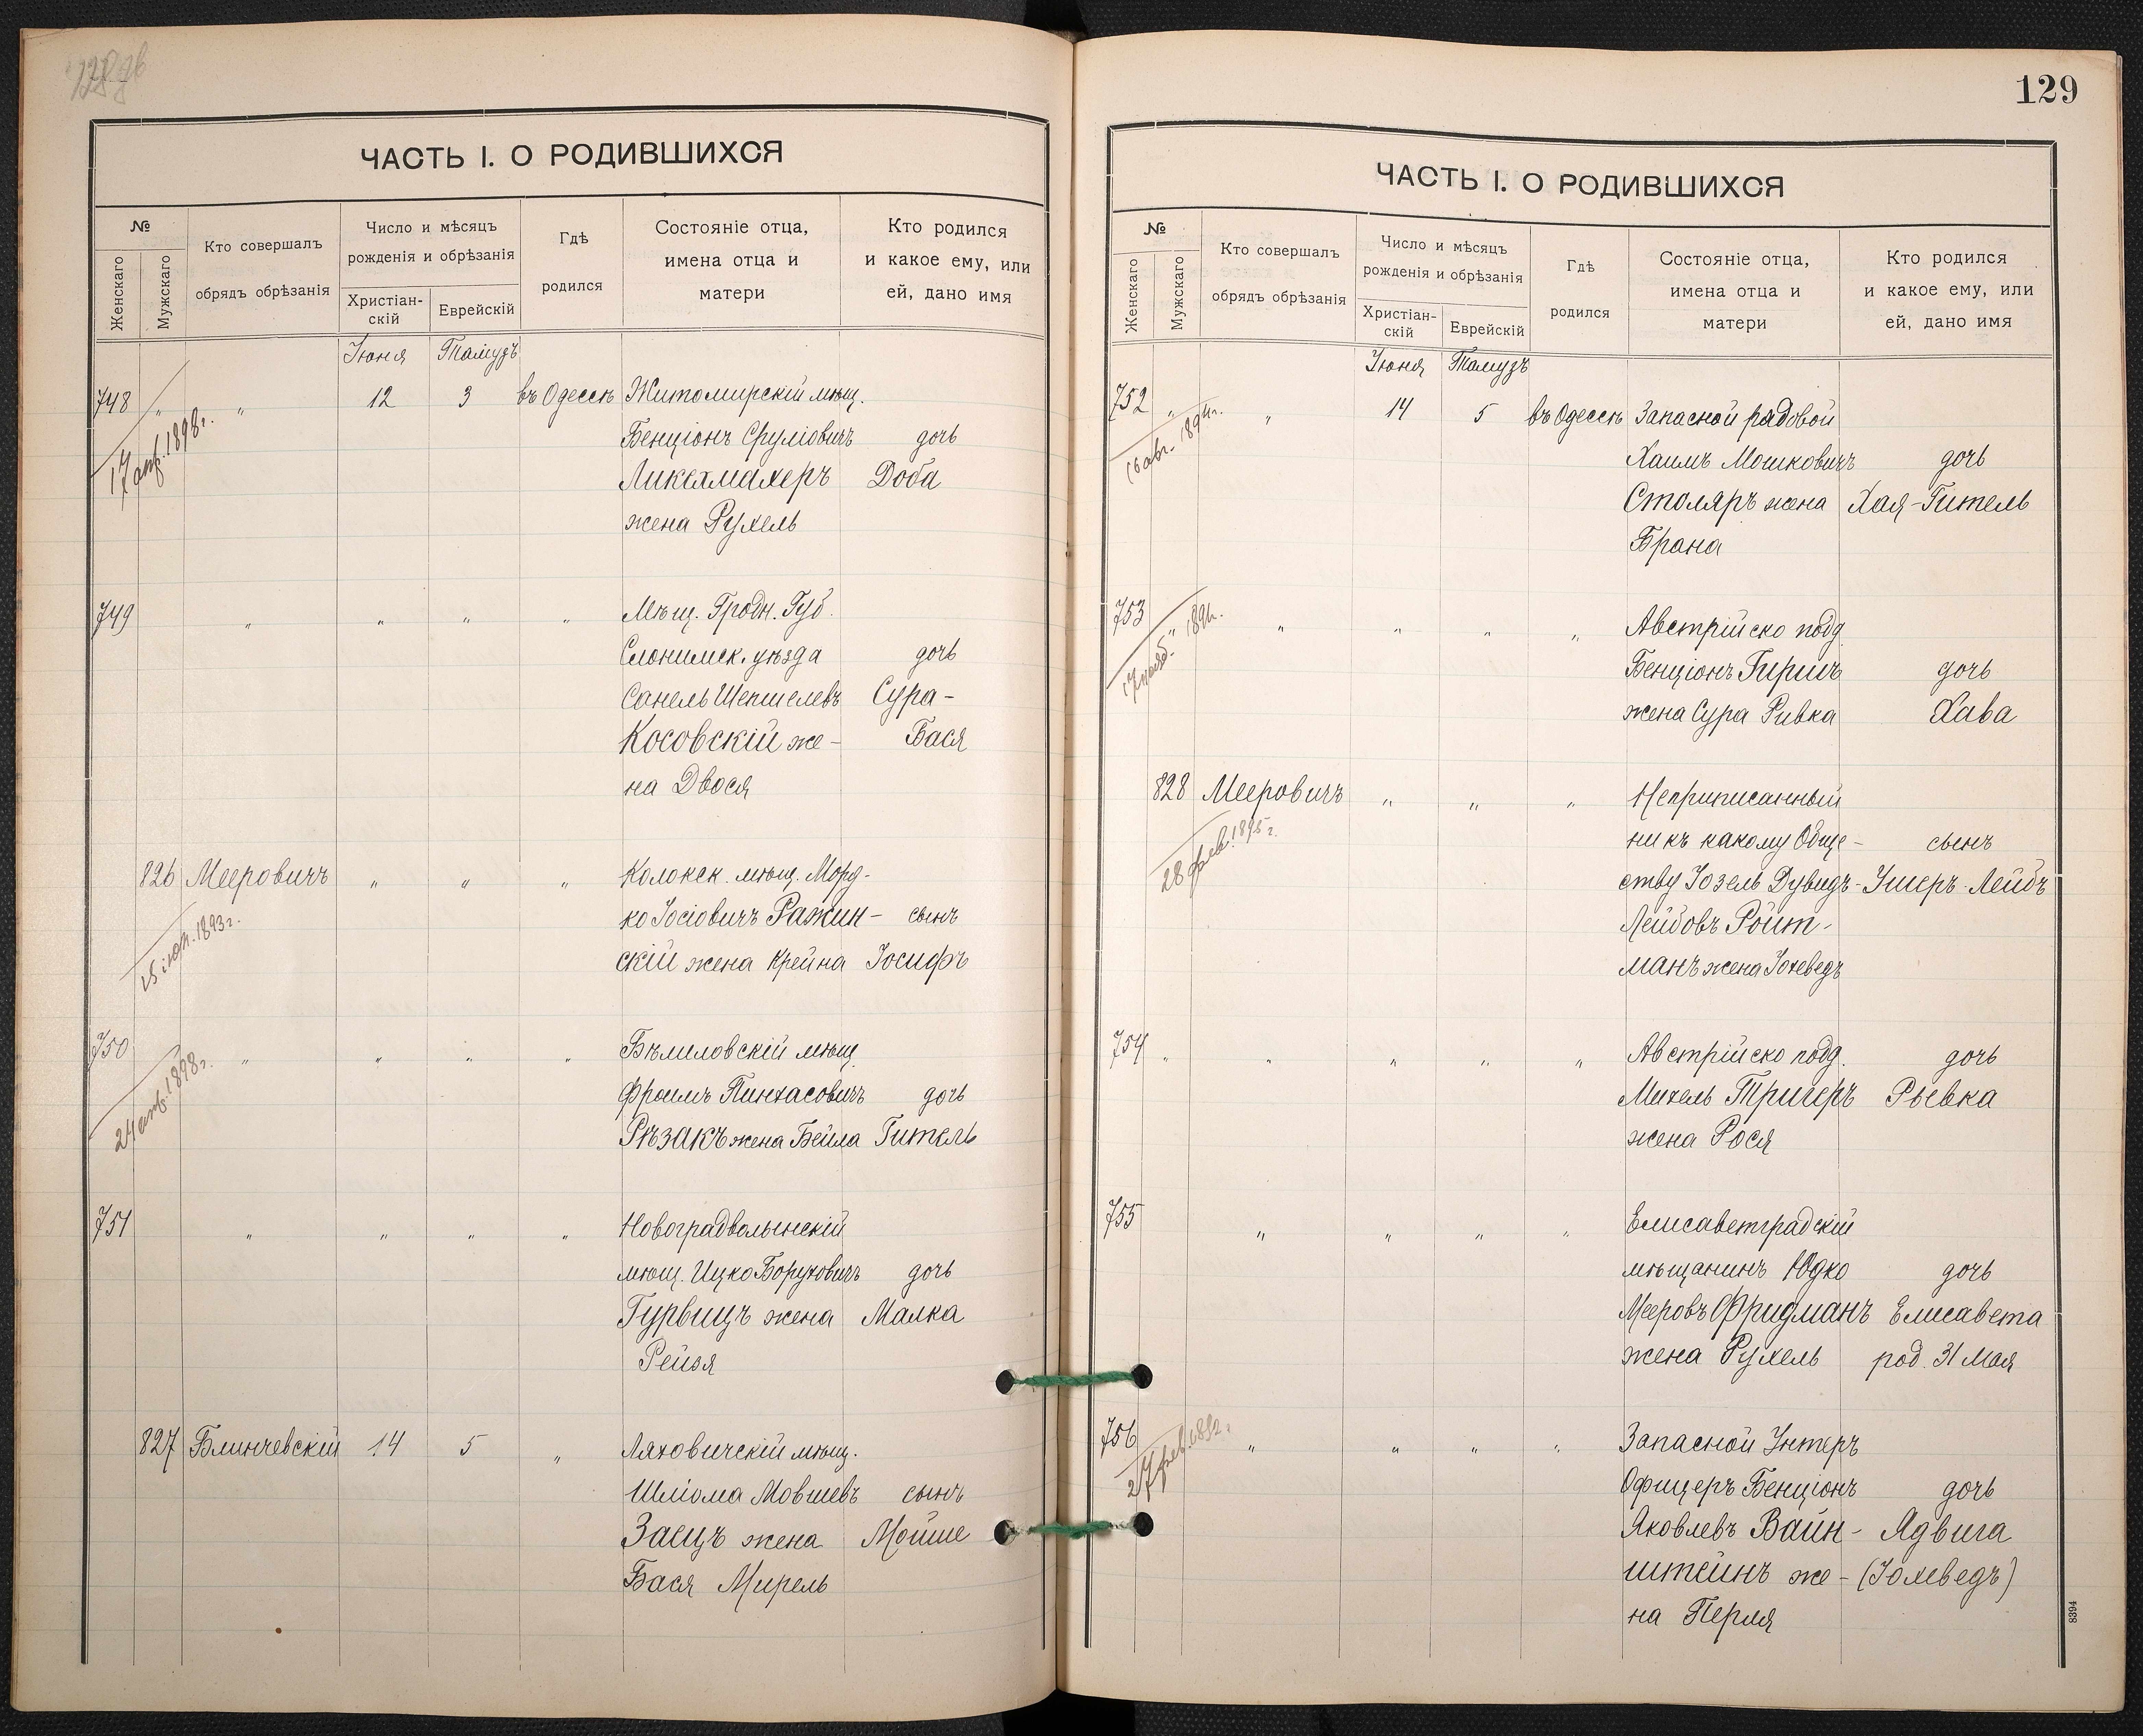 128 об
ЧАСТЬ I. О РОДИВШИХСЯ
№
Женскаго
Мужскаго
Кто совершалъ
обрядъ обрѣзанія
Число и мѣсяцъ
рожденія и обрѣзанія
Христіан-
скій
Еврейскій
Гдѣ
родился
Состояніе отца,
имена отца и
матери
Кто родился
и какое ему, или
ей, дано имя
Іюня Тамузъ
748 " " 12 3 въ Одессѣ Житомирскій мѣщ.
17 апр. 1898г.
Бенціонъ Сруліовичъ дочь
Ликехмахеръ Доба
жена Рухель
749 " " " " Мѣщ. Гродн. Губ.
Слонимск. уѣзда дочь
Санель Шепшелевъ Сура-
Косовскій же- Бася
на Двося
826 Мееровичъ " " " Колокск. мѣщ. Морд-
1893г.
ко Іосіовичъ Ражин- сынъ
скій жена Крейна Іосифъ
750 " " " " Бѣлиловскій мѣщ.
24 апр. 1898г.
Фроимъ Пинхасовичъ дочь
Рѣзакъ жена Бейла Гитель
751 " " " " Новоградволынскій
мѣщ. Ицко Боруховичъ дочь
Гурвицъ жена Малка
Рейзя
827 Блинчевскій 14 5 " Ляховичскій мѣщ.
Шліома Мовшевъ сынъ
Заецъ жена Мойше
Бася Мирель
129
ЧАСТЬ I. О РОДИВШИХСЯ
№
Женскаго
Мужскаго
Кто совершалъ
обрядъ обрѣзанія
Число и мѣсяцъ
рожденія и обрѣзанія
Христіан-
скій
Еврейскій
Гдѣ
родился
Состояніе отца,
имена отца и
матери
Кто родился
и какое ему, или
ей, дано имя
Іюня Тамузъ
752 " " 14 5 въ Одессѣ Запасной рядовой
16 авг. 1894г.
Хаимъ Мошковичъ дочь
Столяръ жена Хая-Гитель
Брана
753 " " " " " Австрійско подд.
Бенціонъ Гиршъ дочь
жена Сура Ривка Хава
828 Мееровичъ " " " Неприписанный
28 фев. 1895г.
ни къ какому Обще- сынъ
ству Іозель Дувидъ- Ушеръ-Лейбъ
Лейбовъ Ройт-
манъ жена Іохеведъ
754 " " " " " Австрійско подд. дочь
Михель Тригеръ Рьевка
жена Рося
755 " " " " Елисаветградскій
мѣщанинъ Юдко дочь
Мееровъ Фридманъ Елисавета
жена Рухель род. 31 Мая
756 " " " " Запасной Унтеръ
Офицеръ Бенціонъ дочь
Яковлевъ Вайн- Ядвига
штейнъ же- (Іохеведъ)
на Перля
8394